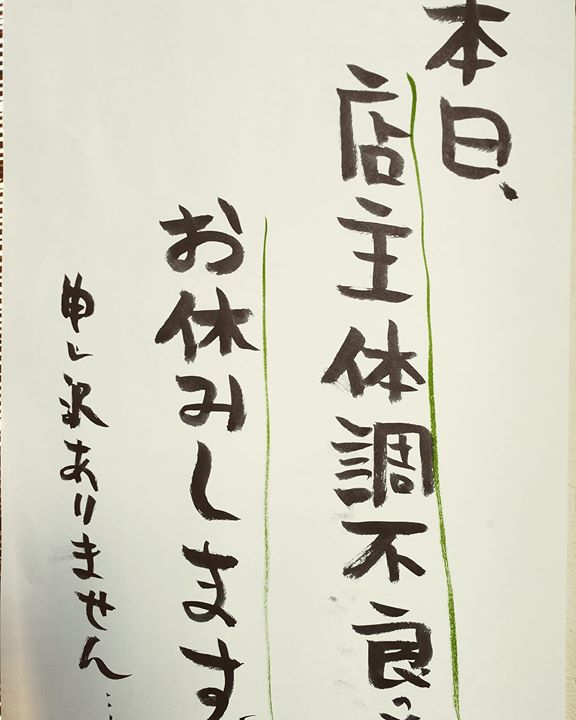 本日、
店主体調不良の
お休みします。
申し訳ありません…